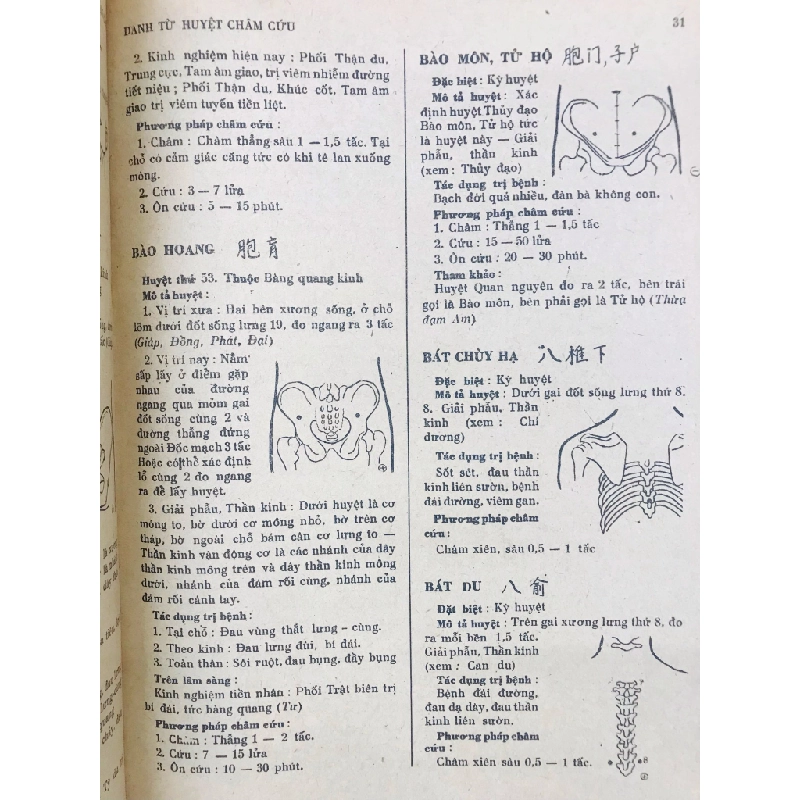 DANH TỪ HUYỆT CHÂM CỨU
31
2. Kinh nghiệm hiện nay : Phối Thận du,
Trung cực, Tam âm giao, trị viêm nhiễm đường
tiết niệu ; Phối Thận du, Khúc cốt, Tam âm
giao trị viêm tuyến tiền liệt.
Phương pháp châm cứu :
1. Châm : Châm thẳng sâu 1 — 1,5 tấc. Tại
chỗ có cảm giác căng tức có khi tê lan xuống
mông.
2. Cứu : 3 — 7 lửa
3. Ôn cứu : 5 — 15 phút.
BÀO HOANG 胞肓
Huyệt thứ 53. Thuộc Bàng quang kinh
Mô tả huyệt :
1. Vị trí xưa : Hai bên xương sống, ở chỗ
lõm dưới đốt sống lưng 19, đo ngang ra 3 tấc
(Giáp, Đồng, Phát, Đại)
2. Vị trí nay : Nằm
sấp lấy ở điểm gặp
nhau của đường
ngang qua mỏm gai
đốt sống cùng 2 và
đường thẳng đứng
ngoài Đốc mạch 3 tấc
Hoặc có thể xác định
lỗ cùng 2 đo ngang
ra để lấy huyệt.
3. Giải phẫu, Thần kinh : Dưới huyệt là cơ
mông to, bờ dưới cơ mông nhỏ, bờ trên cơ
tháp, bờ ngoài chỗ bám cân cơ lưng to —
Thần kinh vận động cơ là các nhánh của dây
thần kinh mông trên và dây thần kinh mông
dưới, nhánh của đám rối cùng, nhánh của
đám rối cánh tay.
Tác dụng trị bệnh :
1. Tại chỗ : Đau vùng thắt lưng – cùng.
2. Theo kinh : Đau lưng đùi, bí đái.
3. Toàn thân : Sôi ruột, đau bụng, đầy bụng
Trên lâm sàng :
Kinh nghiệm tiền nhân : Phối Trật biên trị
bí đái, tức bàng quang (Tư)
Phương pháp châm cứu :
1. Châm : Thẳng 1 — 2 tấc.
2. Cứu : 7 — 15 lửa
3. Ôn cứu : 10 — 30 phút.
BÀO MÔN, TỬ HỘ 胞门,子户
Đặc biệt : Kỳ huyệt
Mô tả huyệt : Xác
định huyệt Thủy đạo
Bào môn, Tử hộ tức
là huyệt này — Giải
phẫu, thần kinh
(xem : Thủy đạo)
Tác dụng trị bệnh :
Bạch đới quá nhiều, đàn bà không con.
Phương pháp châm cứu :
1. Châm : Thẳng 1 — 1,5 tấc
2. Cứu : 15 — 50 lửa
3. Ôn cứu : 20 — 30 phút.
Tham khảo :
Huyệt Quan nguyên đo ra 2 tấc, bên trái
gọi là Bào môn, bên phải gọi là Tử hộ (Thừa
đạm Am).
BÁT CHÙY HẠ 八椎下
Đặc biệt : Kỳ huyệt
Mô tả huyệt : Dưới gai đốt sống lưng thứ 8.
8. Giải phẫu, Thần
kinh (xem : Chí
dương)
Tác dụng trị bệnh :
Sốt rét, đau thần
kinh liên sườn, bệnh
đái đường, viêm gan.
Phương pháp châm
cứu :
Châm xiên, sâu 0,5 — 1 tấc
BÁT DU 八俞
Đặt biệt : Kỳ huyệt
Mô tả huyệt : Trên gai xương lưng thứ 8, đo
ra mỗi bên 1,5 tấc.
Giải phẫu, Thần kinh
(xem : Can du)
Tác dụng trị bệnh :
Bệnh đái đường,
đau dạ dày, đau thần
kinh liên sườn.
Phương pháp châm
cứu :
Châm xiên sâu 0,5 — 1 tấc.